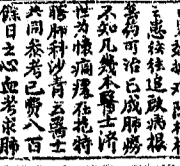 患往往追啟病根
藥可治已成肺癆
不知凡幾本醫士濟
世為懷痌瘝在抱特
聘肺科沙青云醫士
共同參考已費八百
餘日之心血考求肺